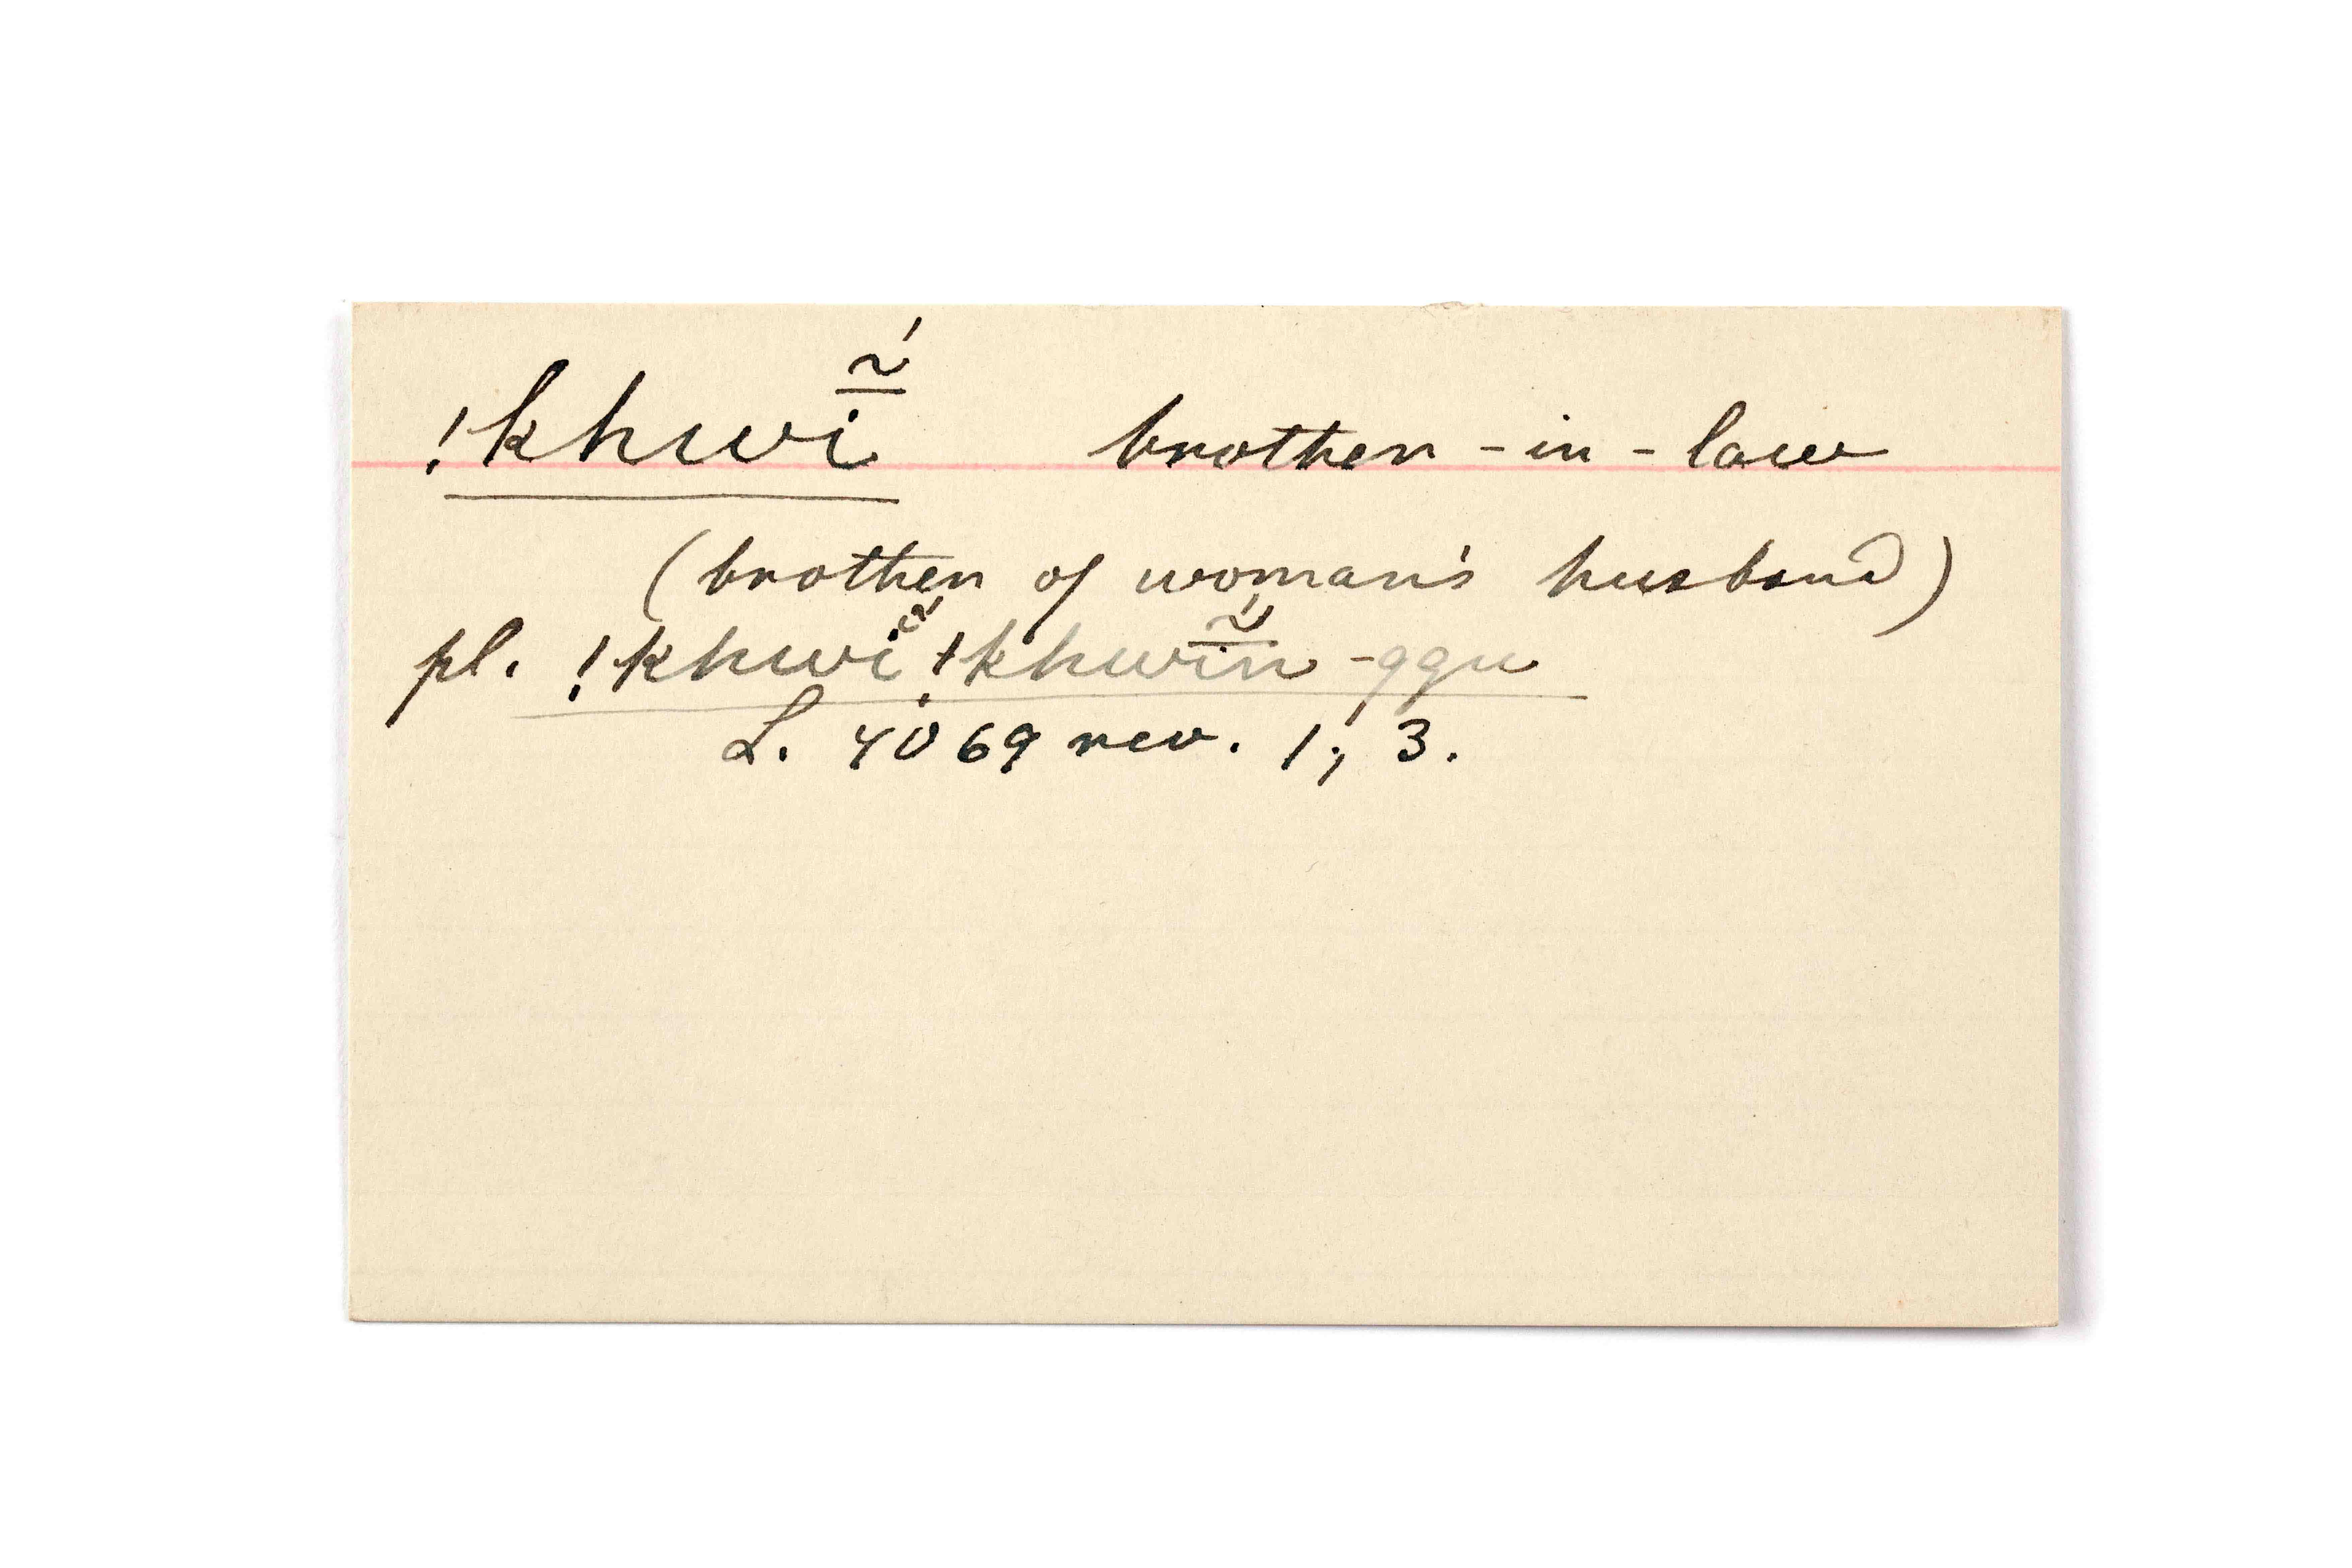 !khwī̃́ brother-in-law
(brother of woman's husband)
pl. !khwĩ́!khwī̃́n-ggu
L. 4069 rev. 1; 3.